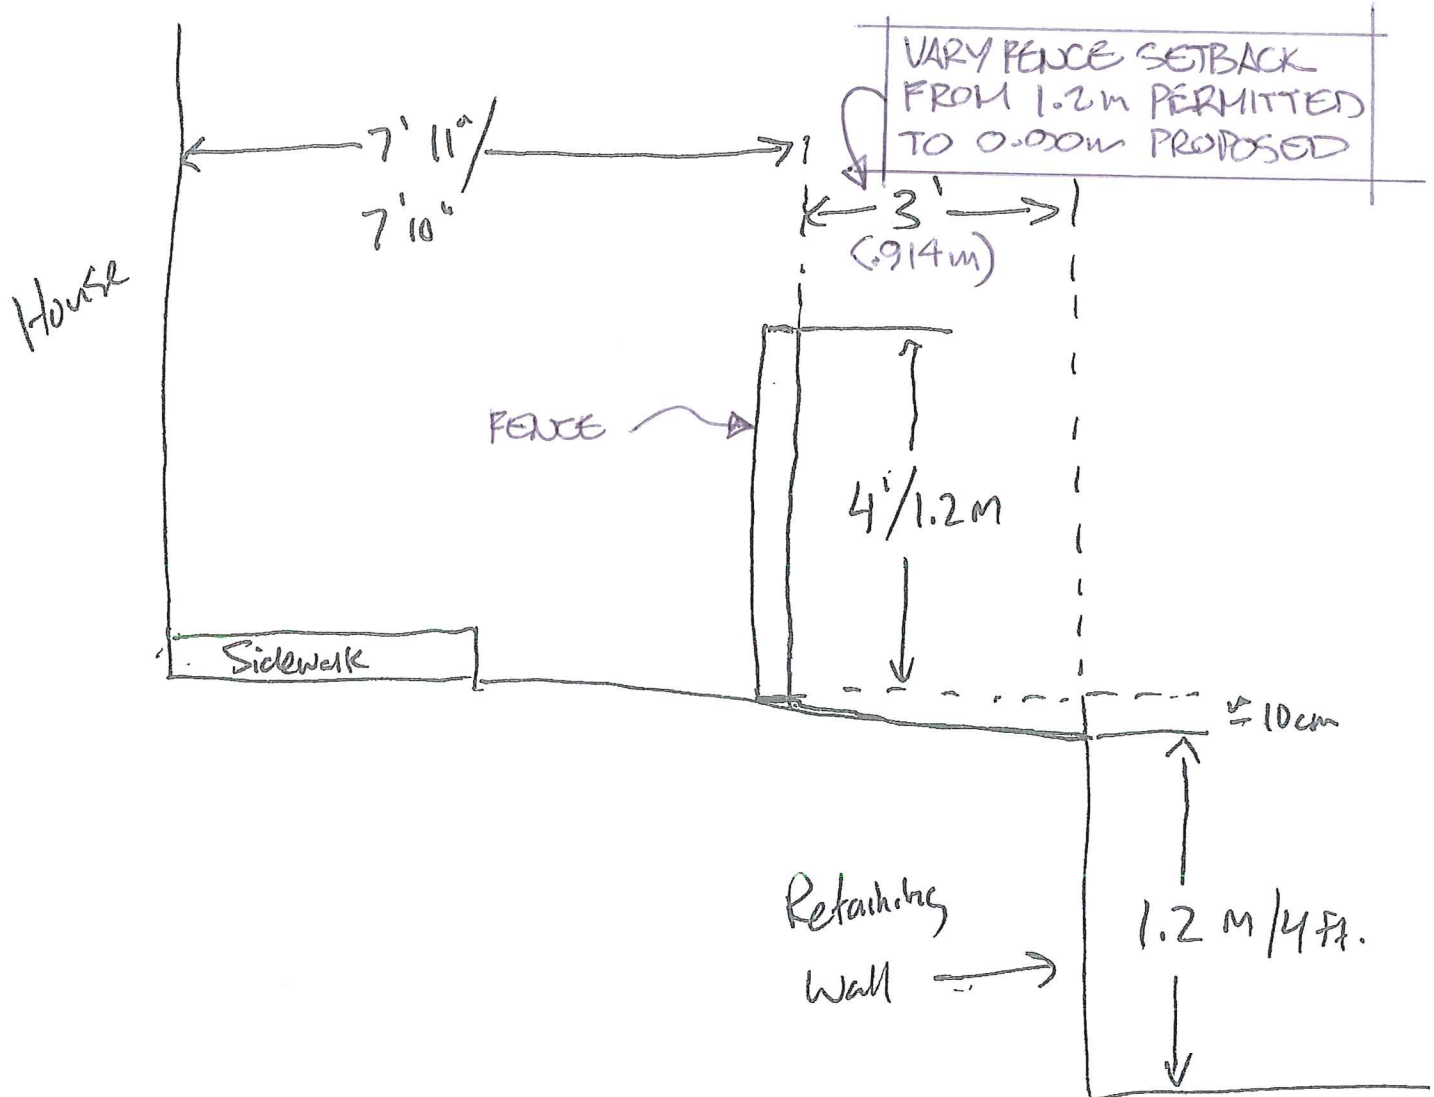 VARY FENCE SETBACK
FROM 1.2m PERMITTED
TO 0.00m PROPOSED
7' 11"/
7'10"
3'
(.914m)
House
FENCE
4'/1.2M
Sidewalk
≈ 10cm
Retaining
Wall
1.2 M/4 Ft.